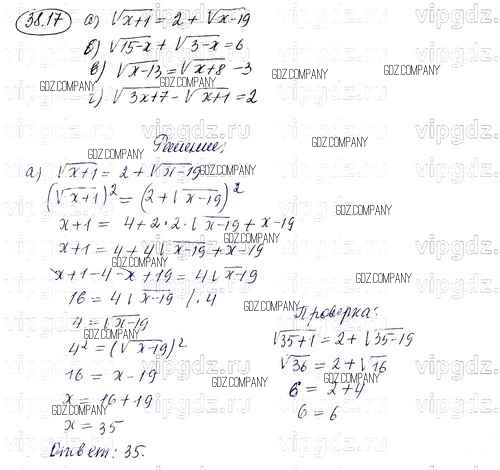 38.17 а) √x+1 = 2 + √x-19
б) √15-x + √3-x = 6
в) √x-13 = √x+8 - 3
г) √3x+7 - √x+1 = 2
Решение:
а) √x+1 = 2 + √x-19
(√x+1)² = (2 + √x-19)²
x+1 = 4 + 2·2·√x-19 + x-19
x+1 = 4 + 4√x-19 + x-19
x+1-4-x+19 = 4√x-19
16 = 4√x-19 /:4
4 = √x-19
4² = (√x-19)²
16 = x-19
x = 16+19
x = 35
Ответ: 35.
Проверка:
√35+1 = 2 + √35-19
√36 = 2 + √16
6 = 2+4
6 = 6
vipgdz.ru
GDZ.COMPANY